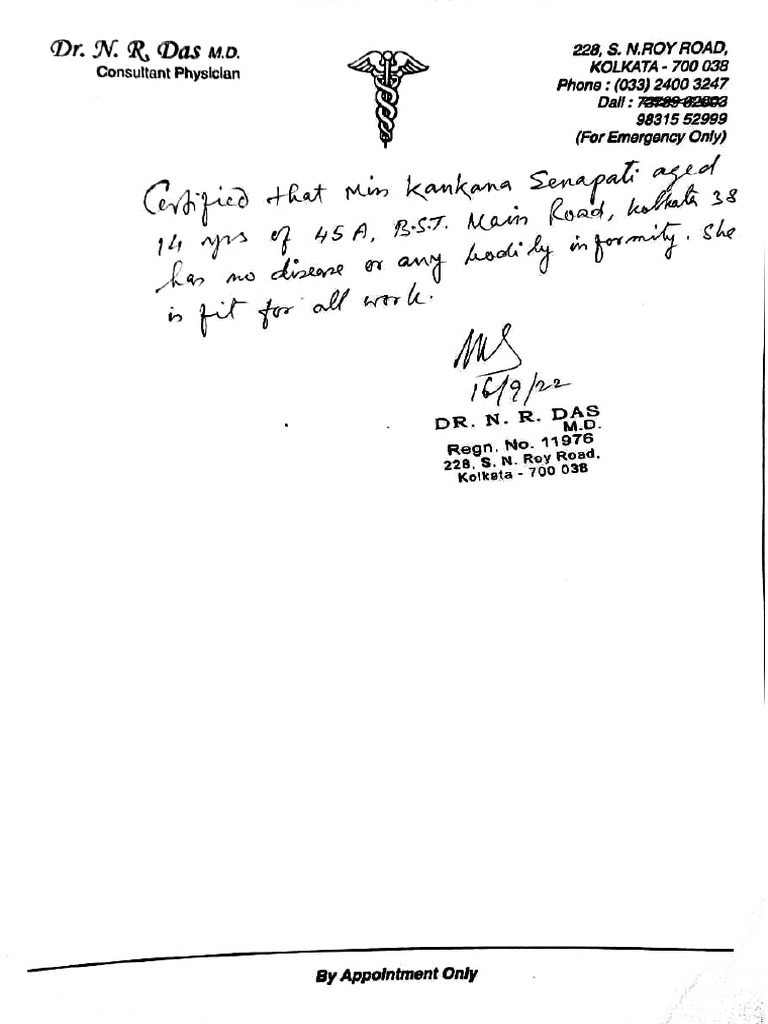 Dr. N. R. Das M.D.
Consultant Physician
228, S. N.ROY ROAD,
KOLKATA - 700 038
Phone : (033) 2400 3247
Dall :
98315 52999
(For Emergency Only)
Certified that Miss Kankana Senapati aged
14 yrs of 45A, B.S.T. Main Road, Kolkata 38
has no disease or any bodily informity. She
is fit for all work.
16/9/22
DR. N. R. DAS
M.D.
Regn. No. 11976
228, S. N. Roy Road,
Kolkata - 700 038
By Appointment Only